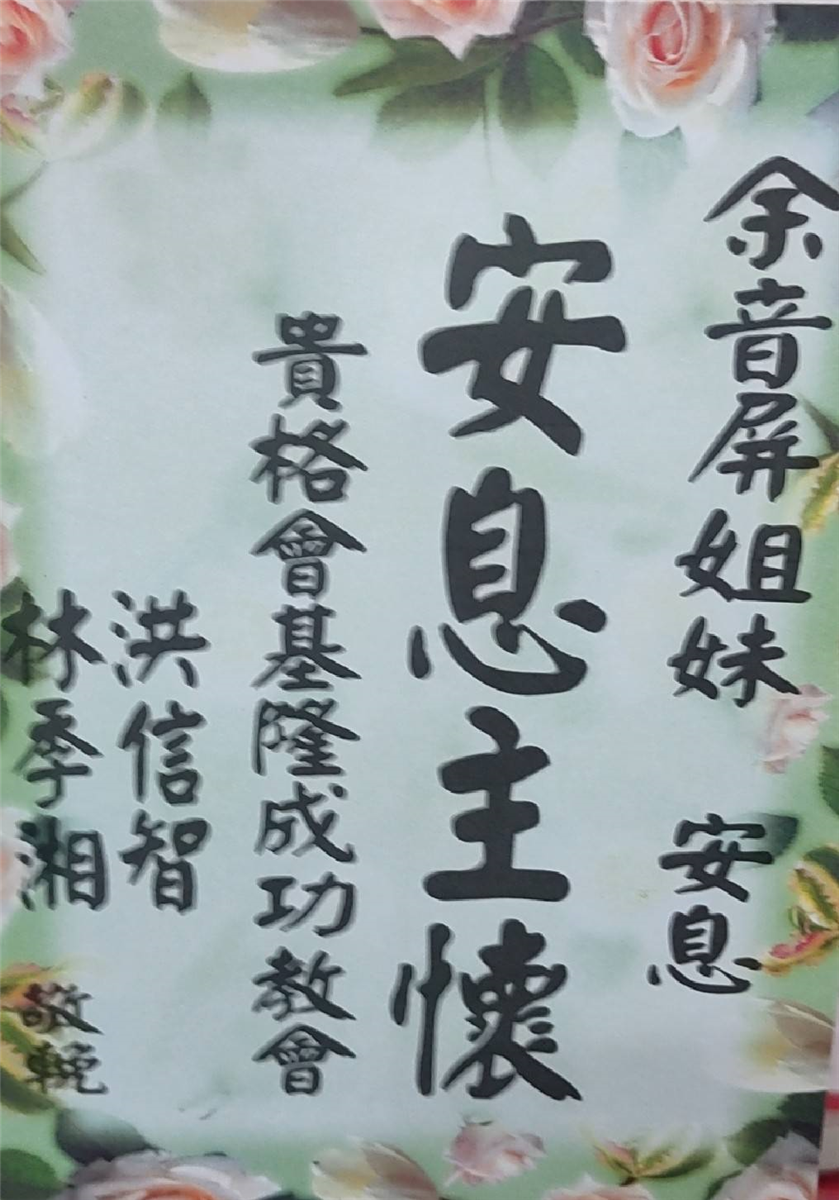 余音屏姐妹 安息
安息主懷
貴格會基隆成功教會
洪信智
林季湘 敬輓